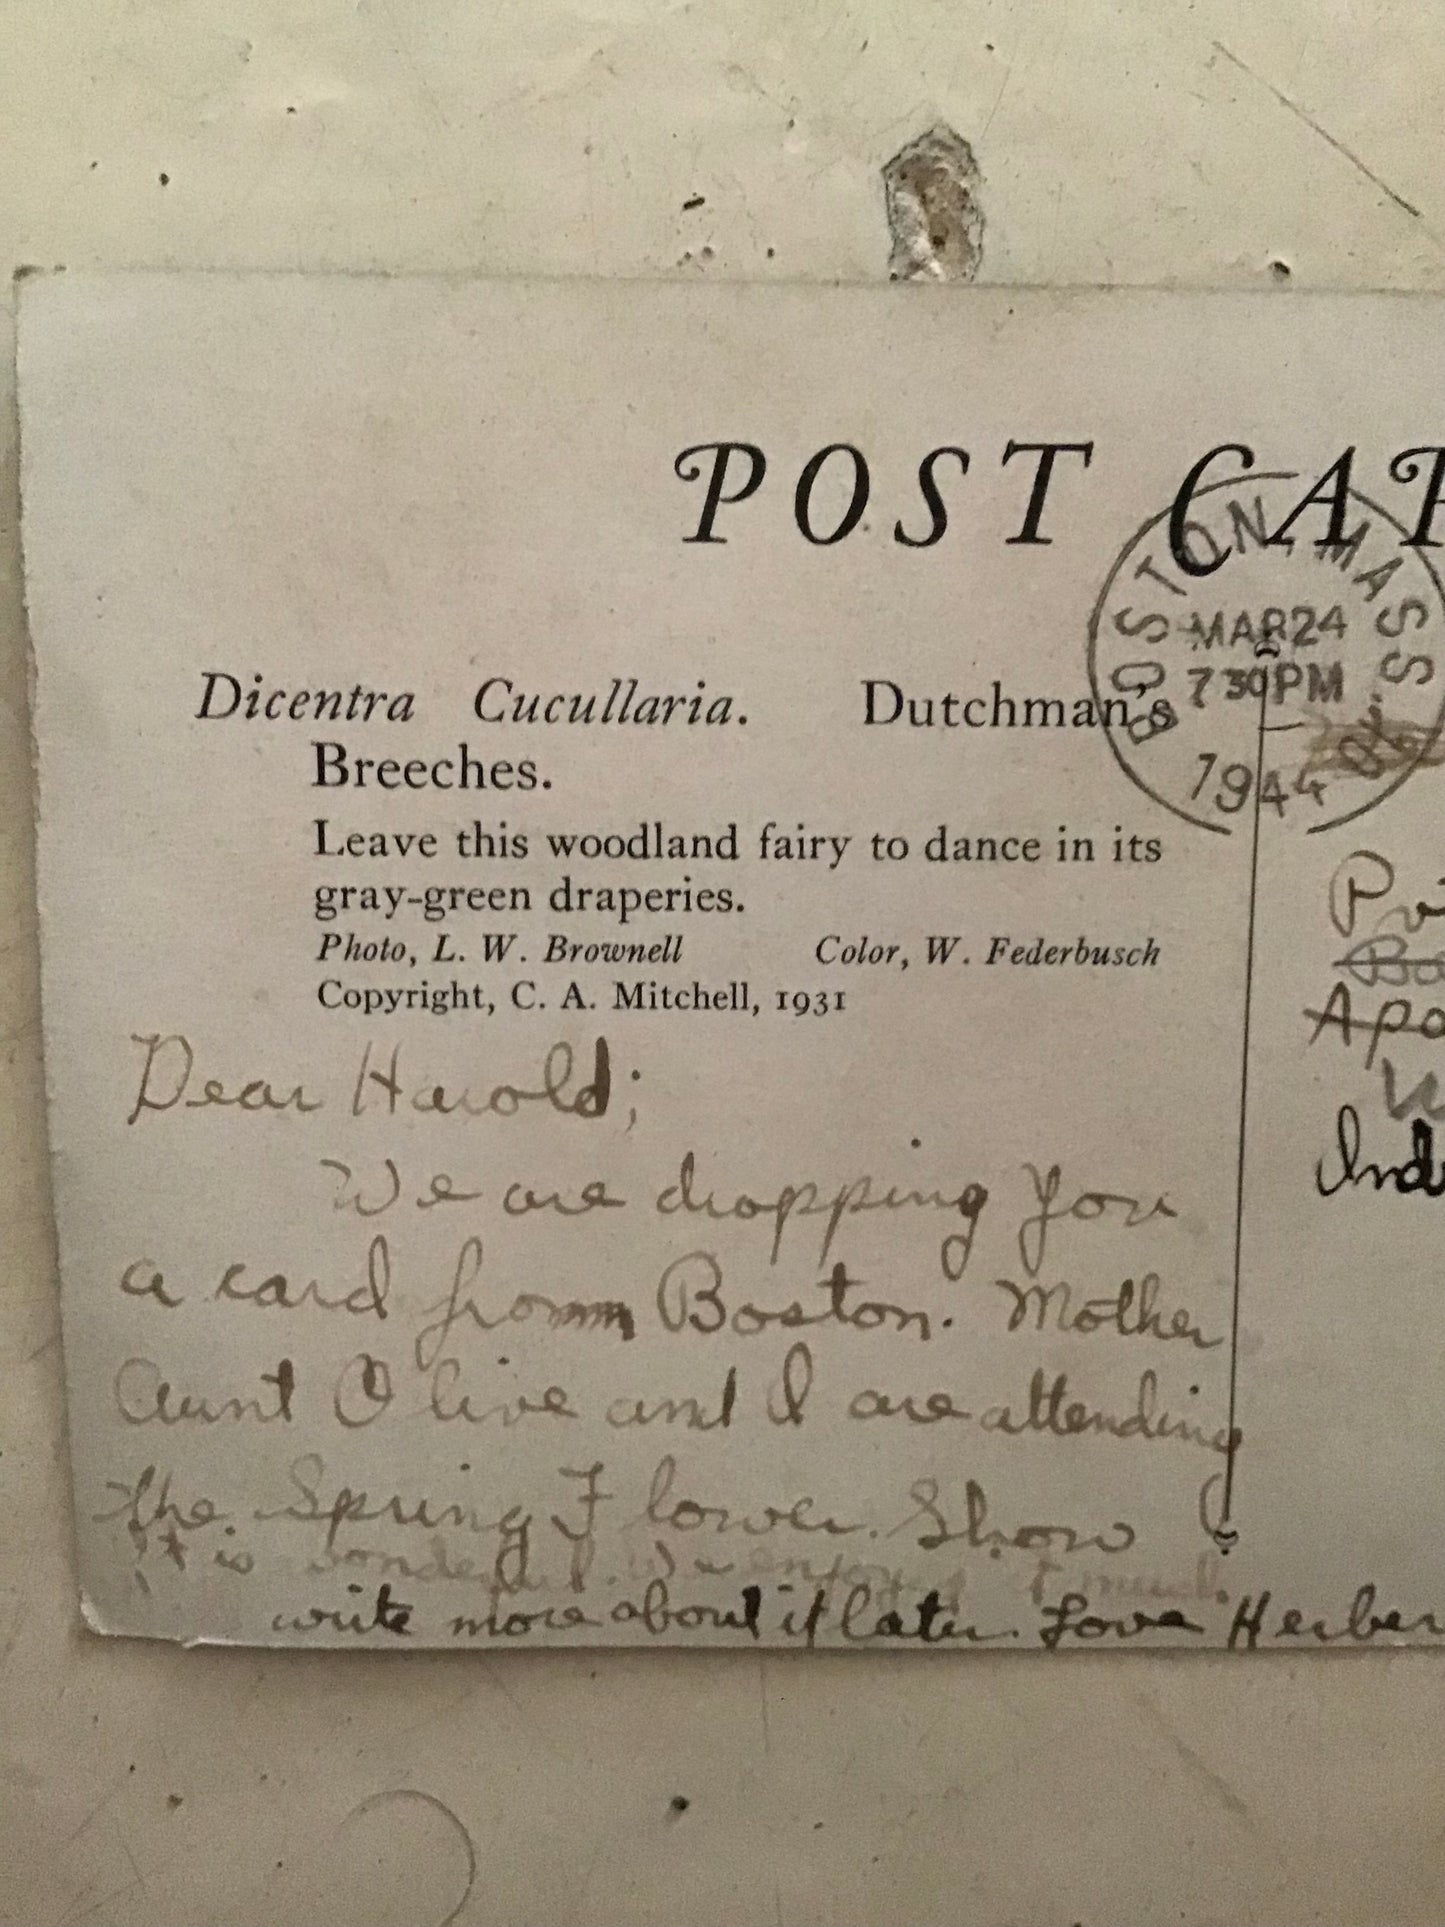 POST CAR
BOSTON, MASS.
MAR 24
7 30 PM
1944
Dicentra Cucullaria. Dutchman's
Breeches.
Leave this woodland fairy to dance in its
gray-green draperies.
Photo, L. W. Brownell Color, W. Federbusch
Copyright, C. A. Mitchell, 1931
Dear Harold;
We are dropping you
a card from Boston. Mother
Aunt Olive and I are attending
the Spring Flower Show
It is wonderful. We enjoyed it much.
write more about it later. Love Herber
Apo
Ind